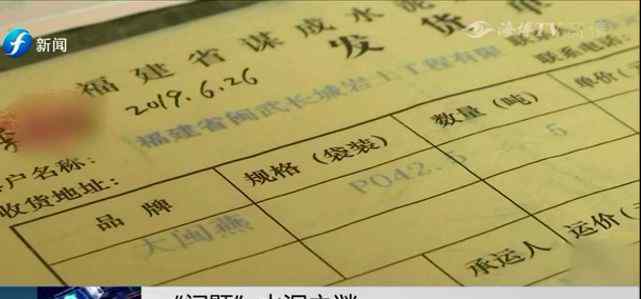 新闻
海博TV
福建省谋成水泥
发货单
2019.6.26
联系电话:
福建省闽武长城岩土工程有限
客户名称:
收货地址:
品牌 规格(袋装) 数量(吨) 单价(
大闽燕 PO42.5 5
承运人 运价(
"问题"水泥